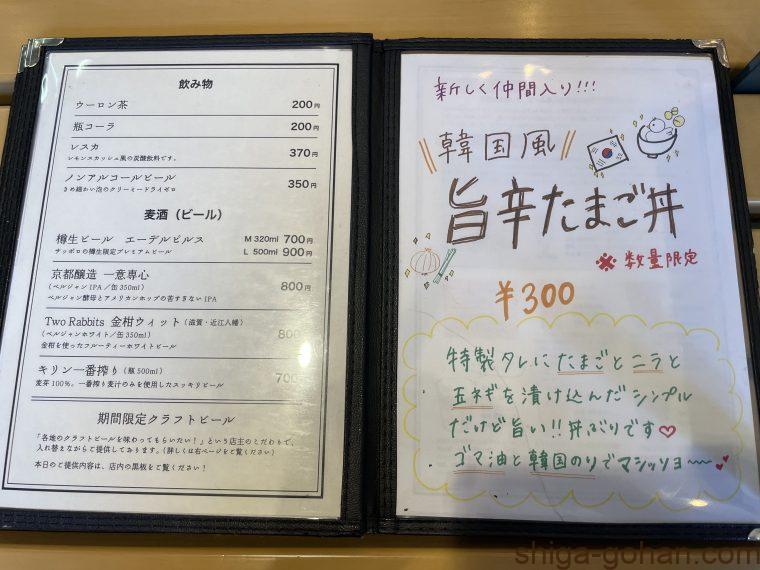 飲み物
ウーロン茶 200円
瓶コーラ 200円
レスカ 370円
レモンスカッシュ風の炭酸飲料です。
ノンアルコールビール 350円
きめ細かい泡のクリーミードライゼロ
麦酒（ビール）
樽生ビール エーデルピルス M 320ml 700円
サッポロの樽生限定プレミアムビール L 500ml 900円
京都醸造 一意専心 800円
（ベルジャンIPA／缶350ml）
ベルジャン酵母とアメリカンホップの苦すぎないIPA
Two Rabbits 金柑ウィット（滋賀・近江八幡） 800
（ベルジャンホワイト／缶350ml）
金柑を使ったフルーティーホワイトビール
キリン一番搾り（瓶500ml） 700
麦芽100％。一番搾り麦汁のみを使用したスッキリビール
期間限定クラフトビール
「各地のクラフトビールを味わってもらいたい！」という店主のこだわりで、
入れ替えながらご提供しております。（詳しくは右ページをご覧ください）
本日のご提供内容は、店内の黒板をご覧ください！
新しく仲間入り!!!
韓国風
旨辛たまご丼
※数量限定
¥300
特製タレにたまごとニラと
玉ネギを漬け込んだシンプル
だけど旨い!!丼ぶりです♡
ゴマ油と韓国のりでマシッソヨ〜〜
shiga-gohan.com